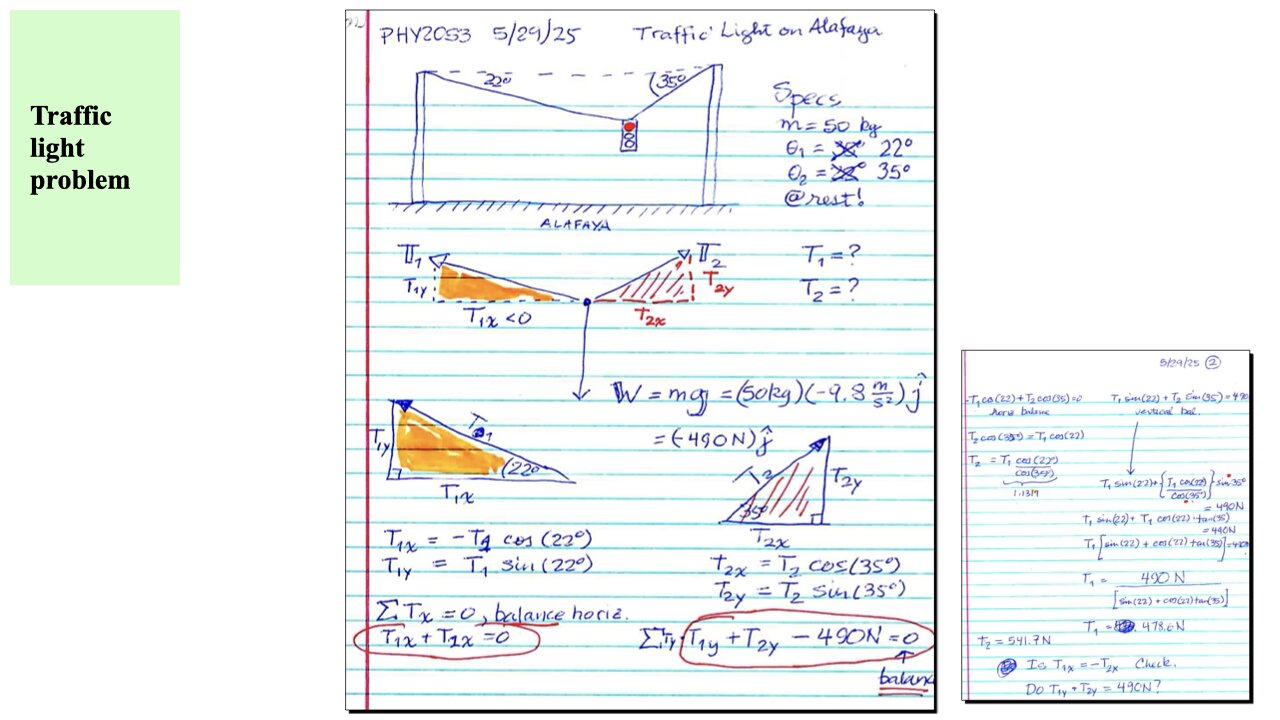 Traffic
light
problem
PHY2053 5/29/25 Traffic Light on Alafaya
22° 35°
Specs
m = 50 kg
θ₁ = 22°
θ₂ = 35°
@rest!
ALAFAYA
T₁ T₂ T₁ = ?
T₁y T₂y T₂ = ?
T₁x < 0 T₂x
W = mg = (50kg)(-9.8 m/s²) ĵ
= (-490N) ĵ
T₁y T₁ 22° T₂ T₂y
T₁x 35°
T₂x
T₁x = -T₁ cos(22°) T₂x = T₂ cos(35°)
T₁y = T₁ sin(22°) T₂y = T₂ sin(35°)
ΣTx = 0, balance horiz.
T₁x + T₂x = 0 ΣTy: T₁y + T₂y - 490N = 0
balanc
5/29/25 ②
-T₁ co(22) + T₂ cos(35) = 0 T₁ sin(22) + T₂ sin(35) = 490
horiz balance vertical bal.
T₂ cos(35°) = T₁ cos(22)
T₂ = T₁ cos(22°)/cos(35°)
1.1319
T₁ sin(22) + {T₁ cos(22)/cos(35°)} sin 35°
= 490N
T₁ sin(22) + T₁ cos(22) tan(35)
= 490N
T₁ [sin(22) + cos(22) tan(35)] = 490
T₁ = 490 N/[sin(22) + cos(22) tan(35)]
T₁ = 478.6N
T₂ = 541.7N
Is T₁x = -T₂x Check.
Do T₁y + T₂y = 490N?